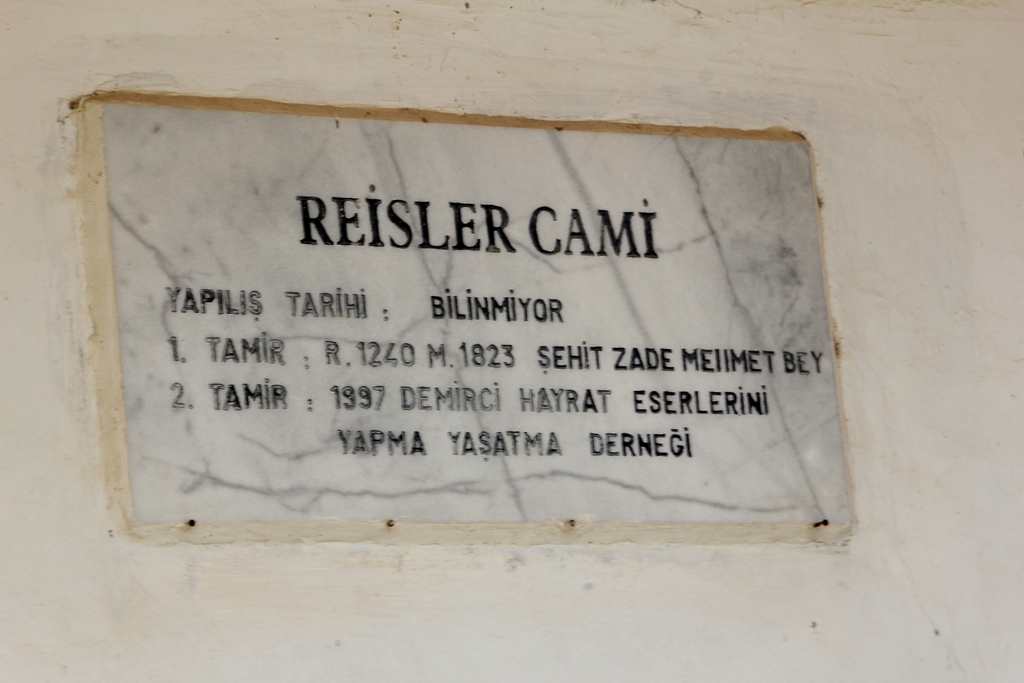 REİSLER CAMİ
YAPILIŞ TARİHİ : BİLİNMİYOR
1. TAMİR : R.1240 M.1823 ŞEHİT ZADE MEHMET BEY
2. TAMİR : 1997 DEMİRCİ HAYRAT ESERLERİNİ
YAPMA YAŞATMA DERNEĞİ